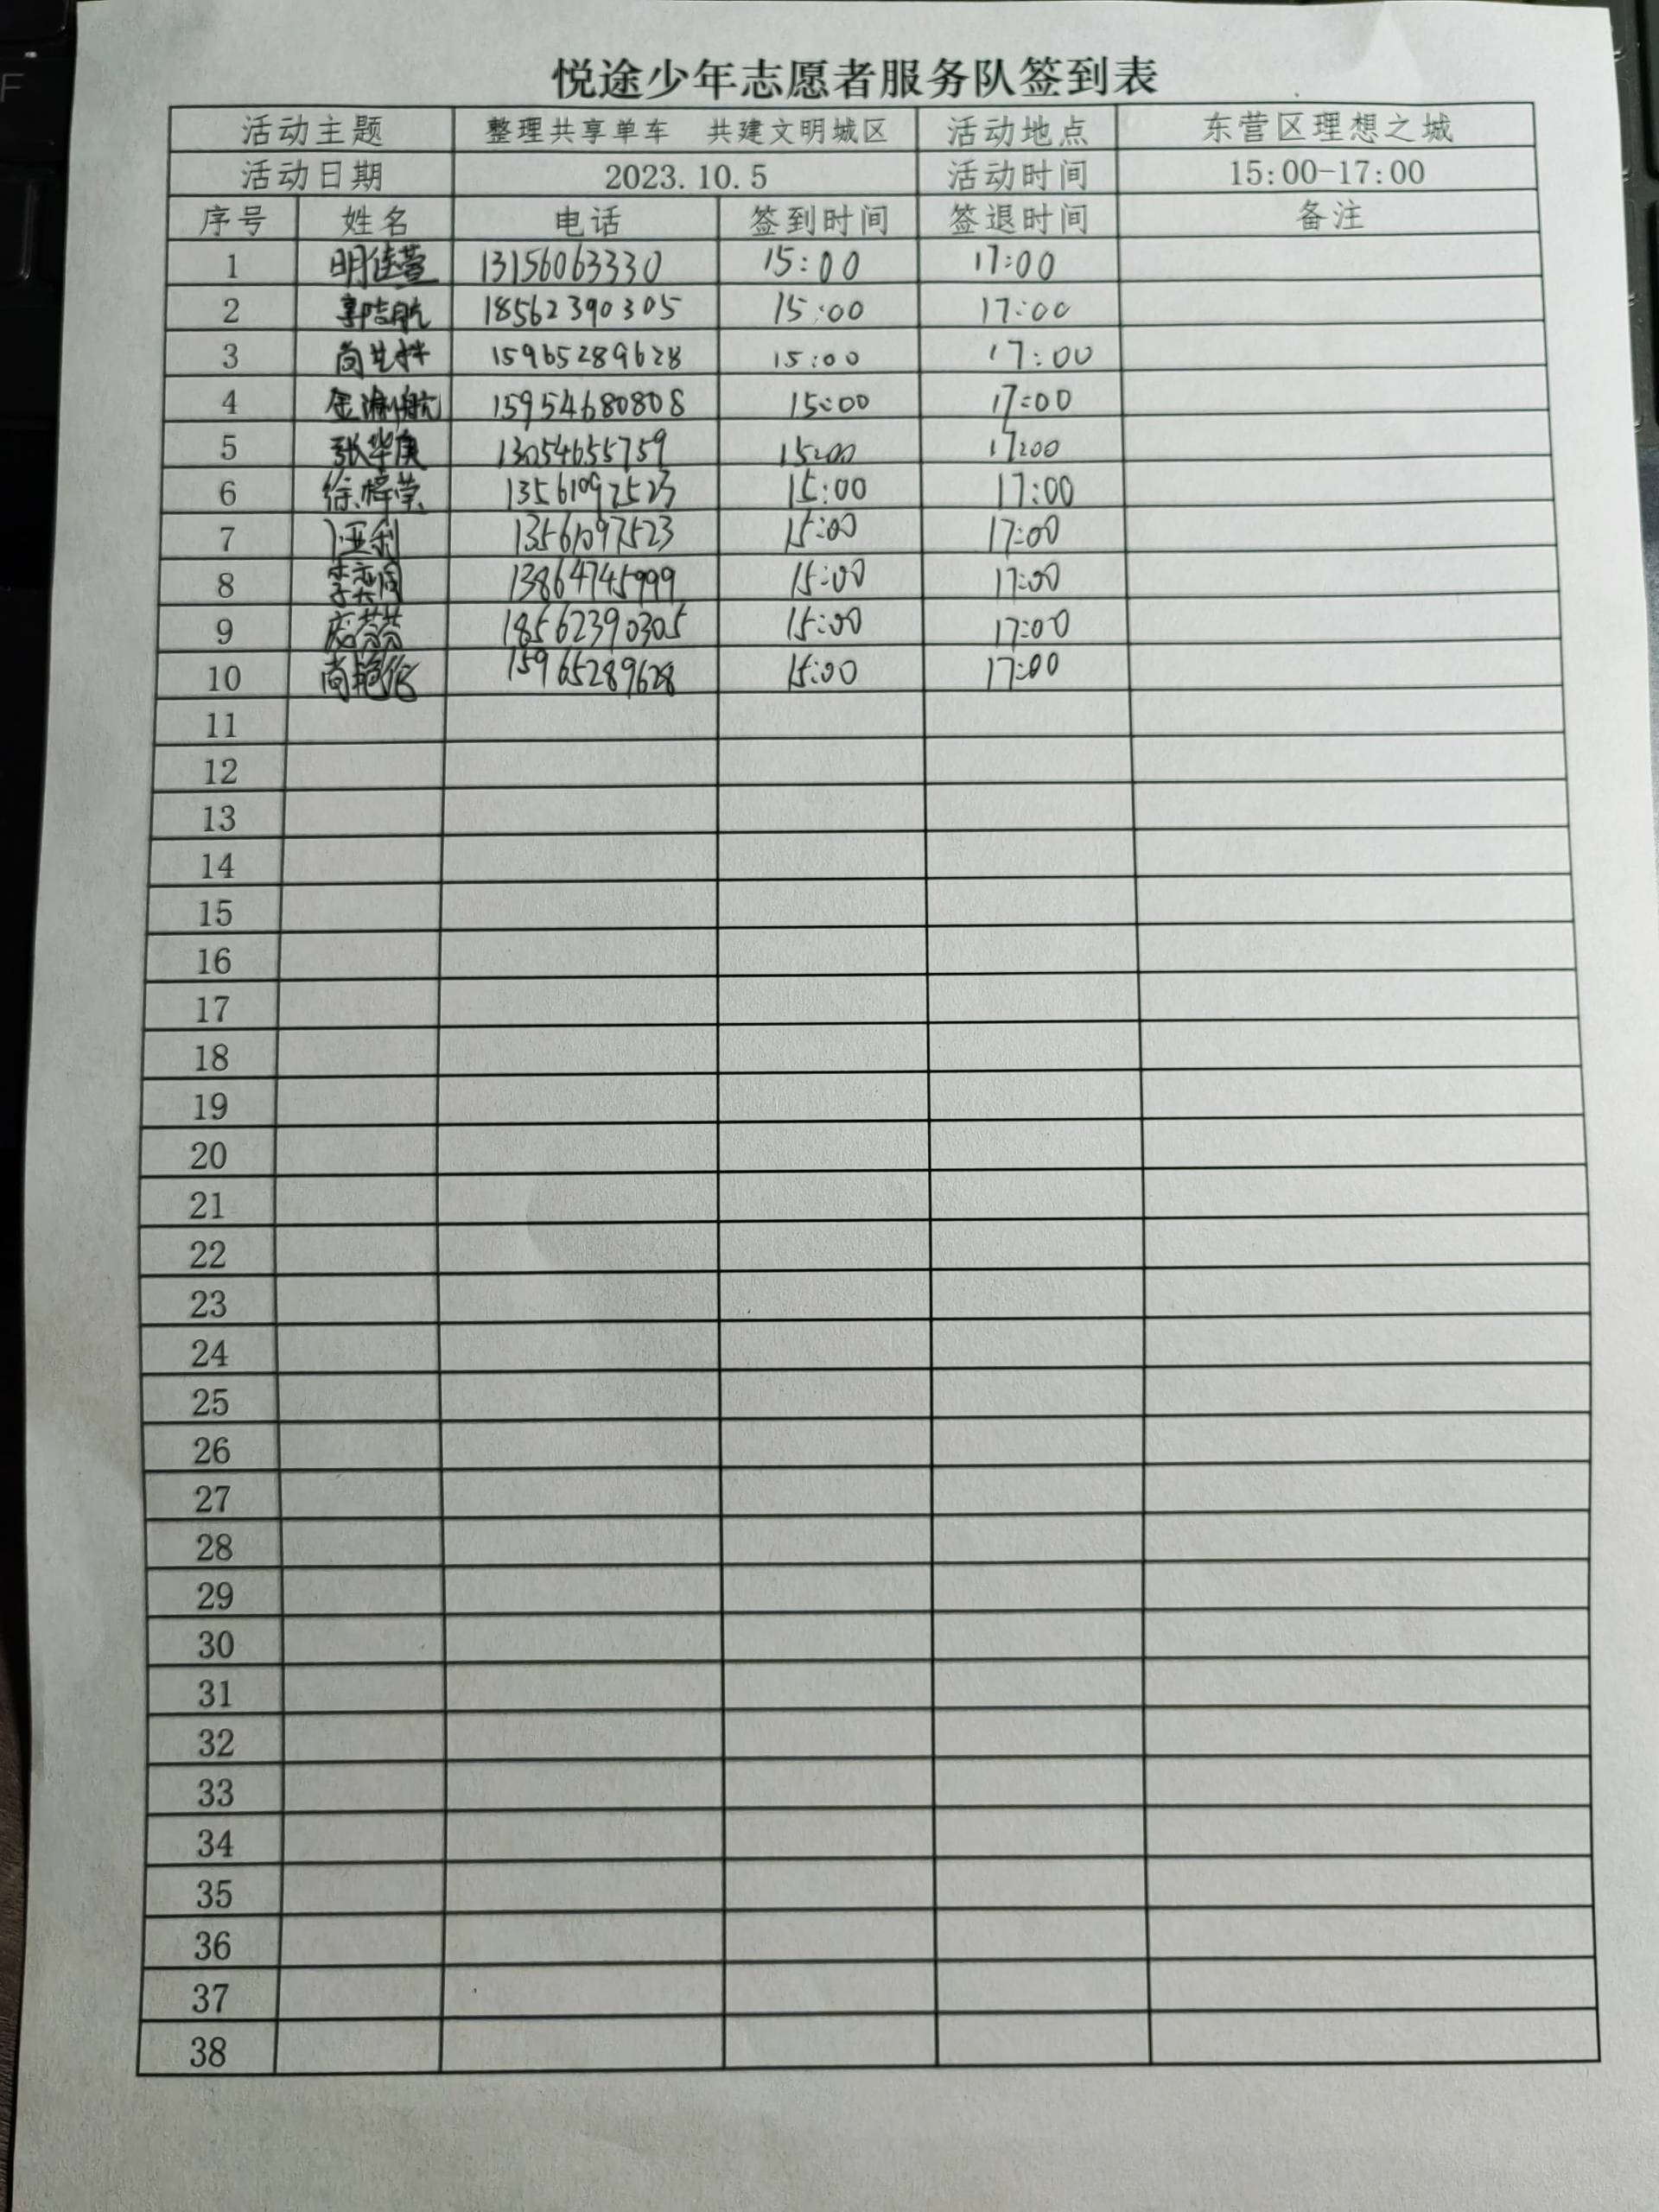 悦途少年志愿者服务队签到表
活动主题 整理共享单车 共建文明城区 活动地点 东营区理想之城
活动日期 2023.10.5 活动时间 15:00-17:00
序号 姓名 电话 签到时间 签退时间 备注
1 明佳萱 13156063330 15:00 17:00
2 18562390305 15:00 17:00
3 15965289628 15:00 17:00
4 15954680808 15:00 17:00
5 张华庚 13054655759 15:00 17:00
6 徐梓莹 13561097523 15:00 17:00
7 13561097523 15:00 17:00
8 13864745999 15:00 17:00
9 庞芬芬 18562390305 15:00 17:00
10 15965289628 15:00 17:00
11
12
13
14
15
16
17
18
19
20
21
22
23
24
25
26
27
28
29
30
31
32
33
34
35
36
37
38